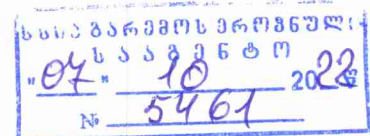 გარემოს ეროვნული
სააგენტო
"07" 10 2022
№ 5461